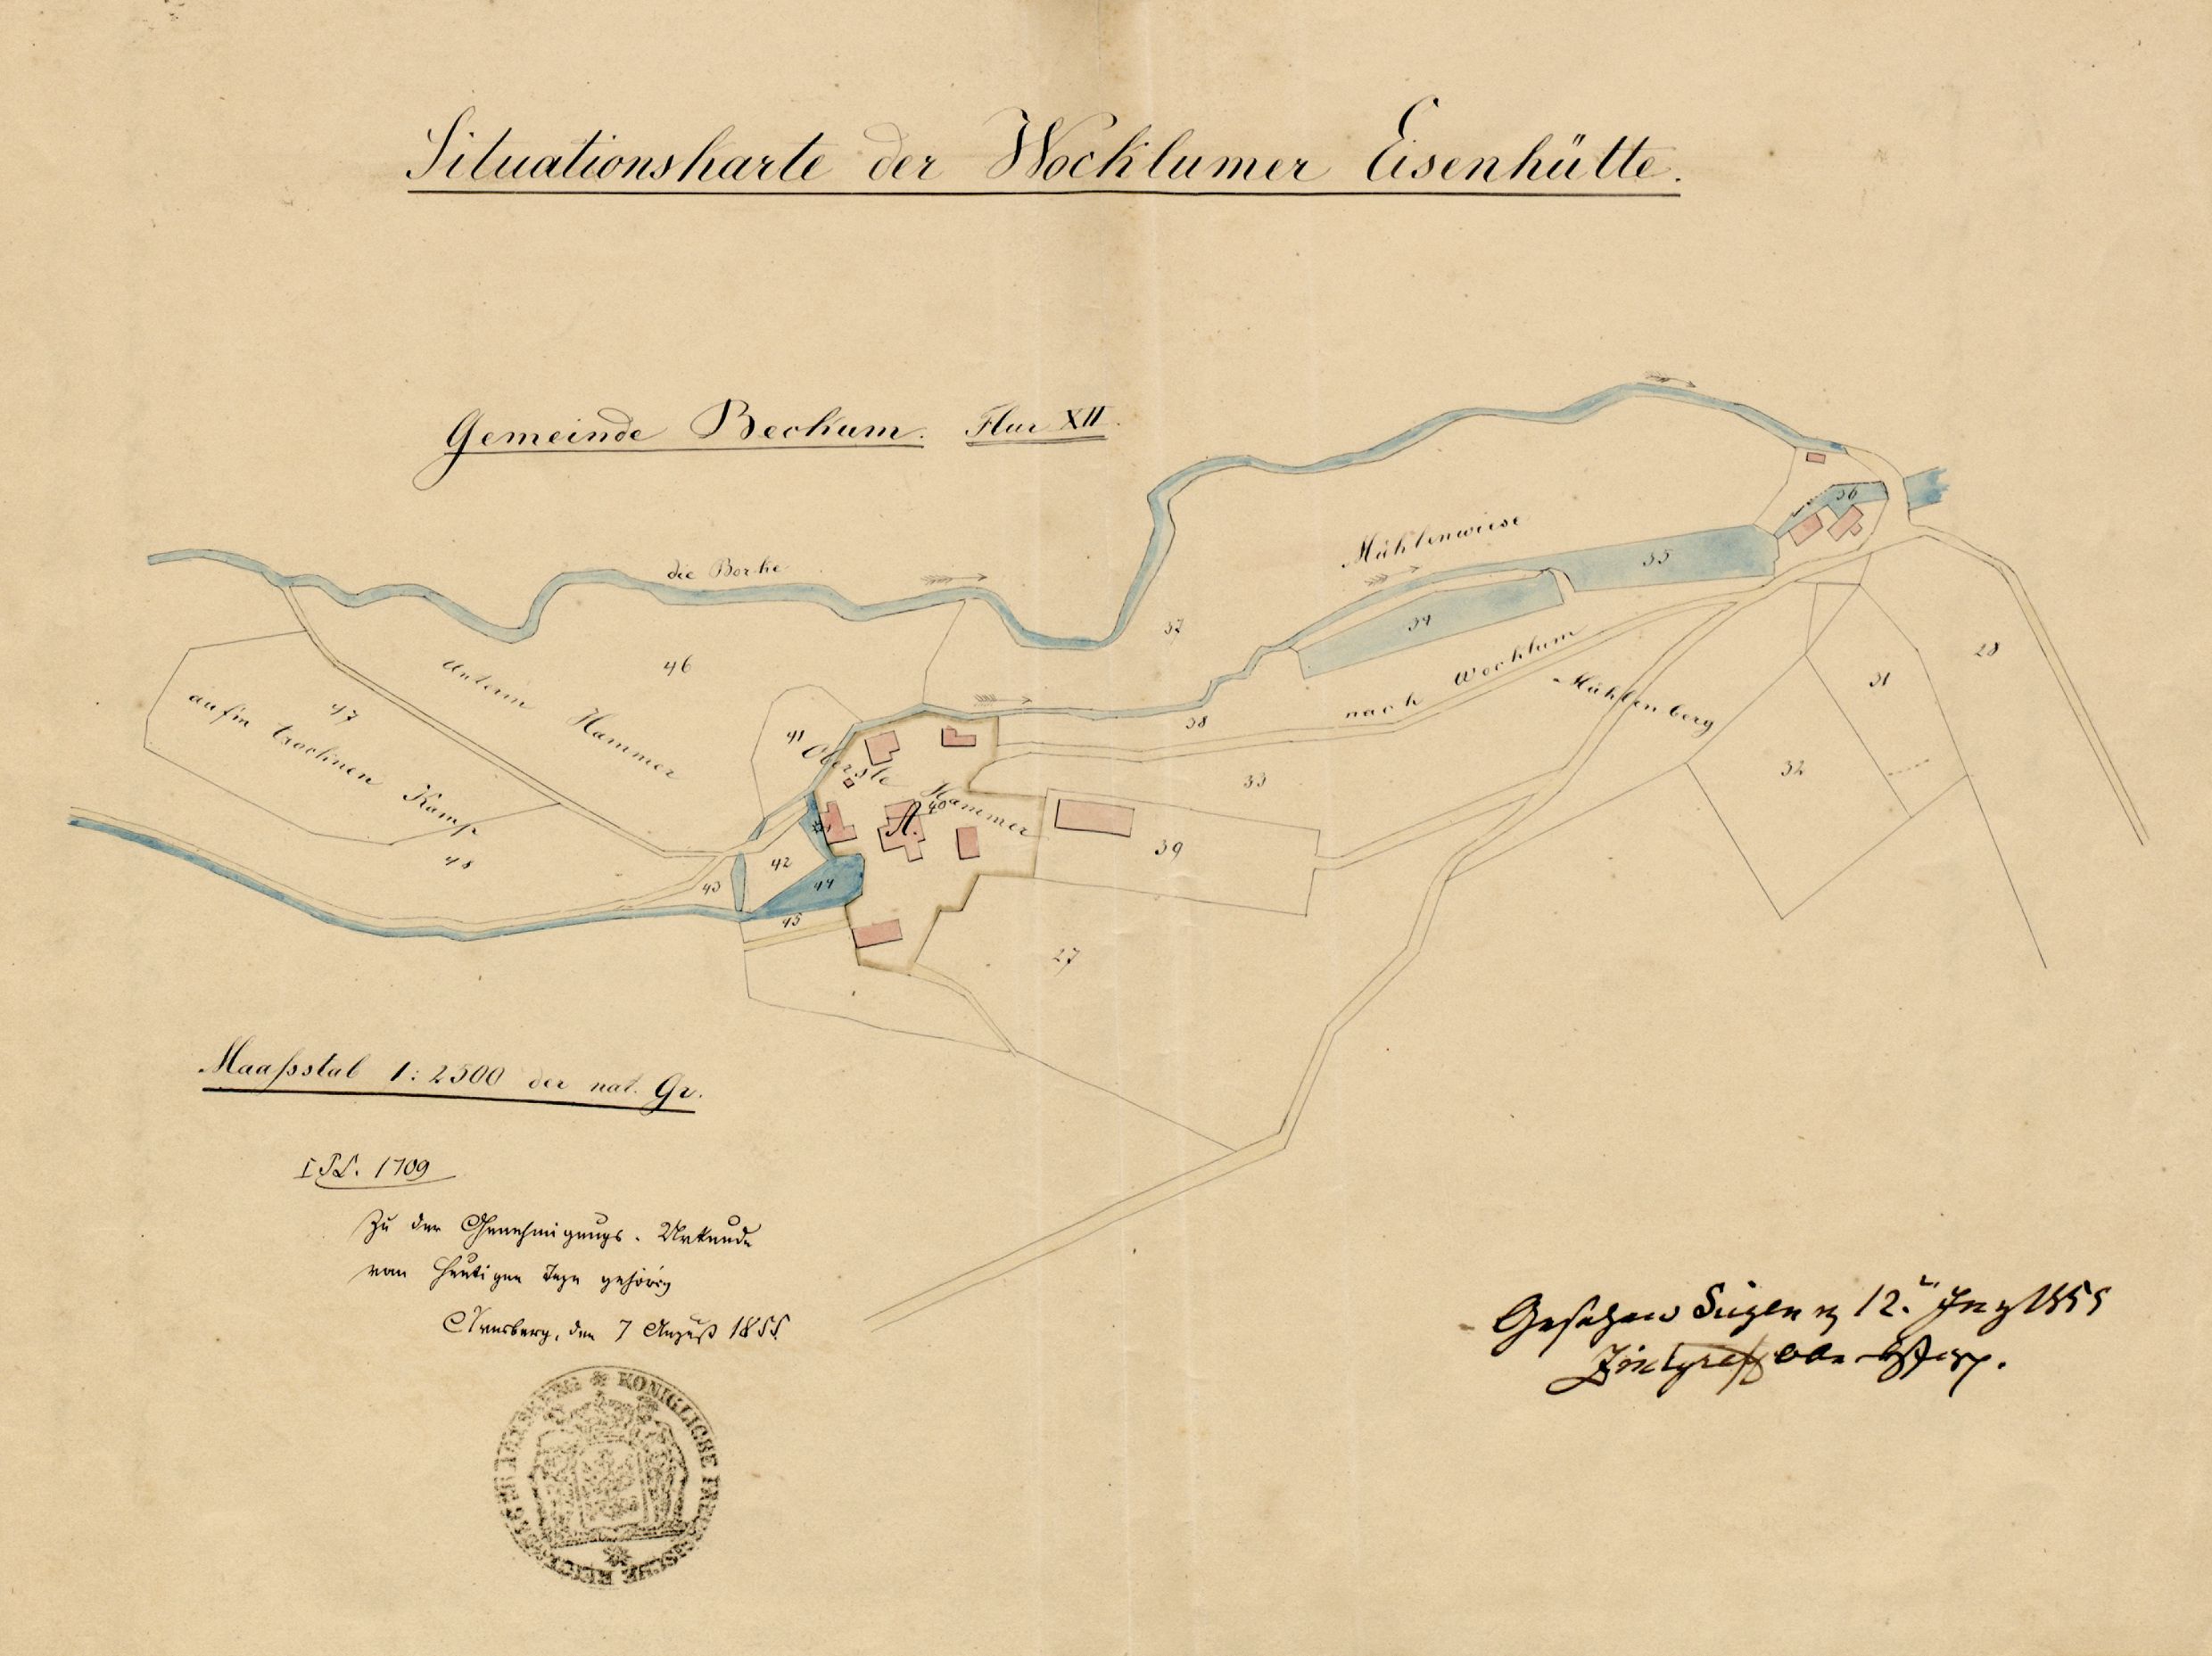 Situationskarte der Wocklumer Eisenhütte.
Gemeinde Beckum. Flur XII.
die Borke
Mühlenwiese
36
35
34
37
46
unterm Hammer
47
aufm trocknen Kamp
48
41
Oberste Hammer
A.
40
38
nach Wocklum
Mühlenberg
28
31
32
33
39
42
43
44
45
27
Maaßstab 1:2500 der nat. Gr.
1709
Zu der Genehmigungs-Urkunde
vom heutigen Tage gehörig
Arnsberg, den 7 August 1855.
Gesehen Siegen 12. 1855
KONIGLICHE PREUSSISCHE